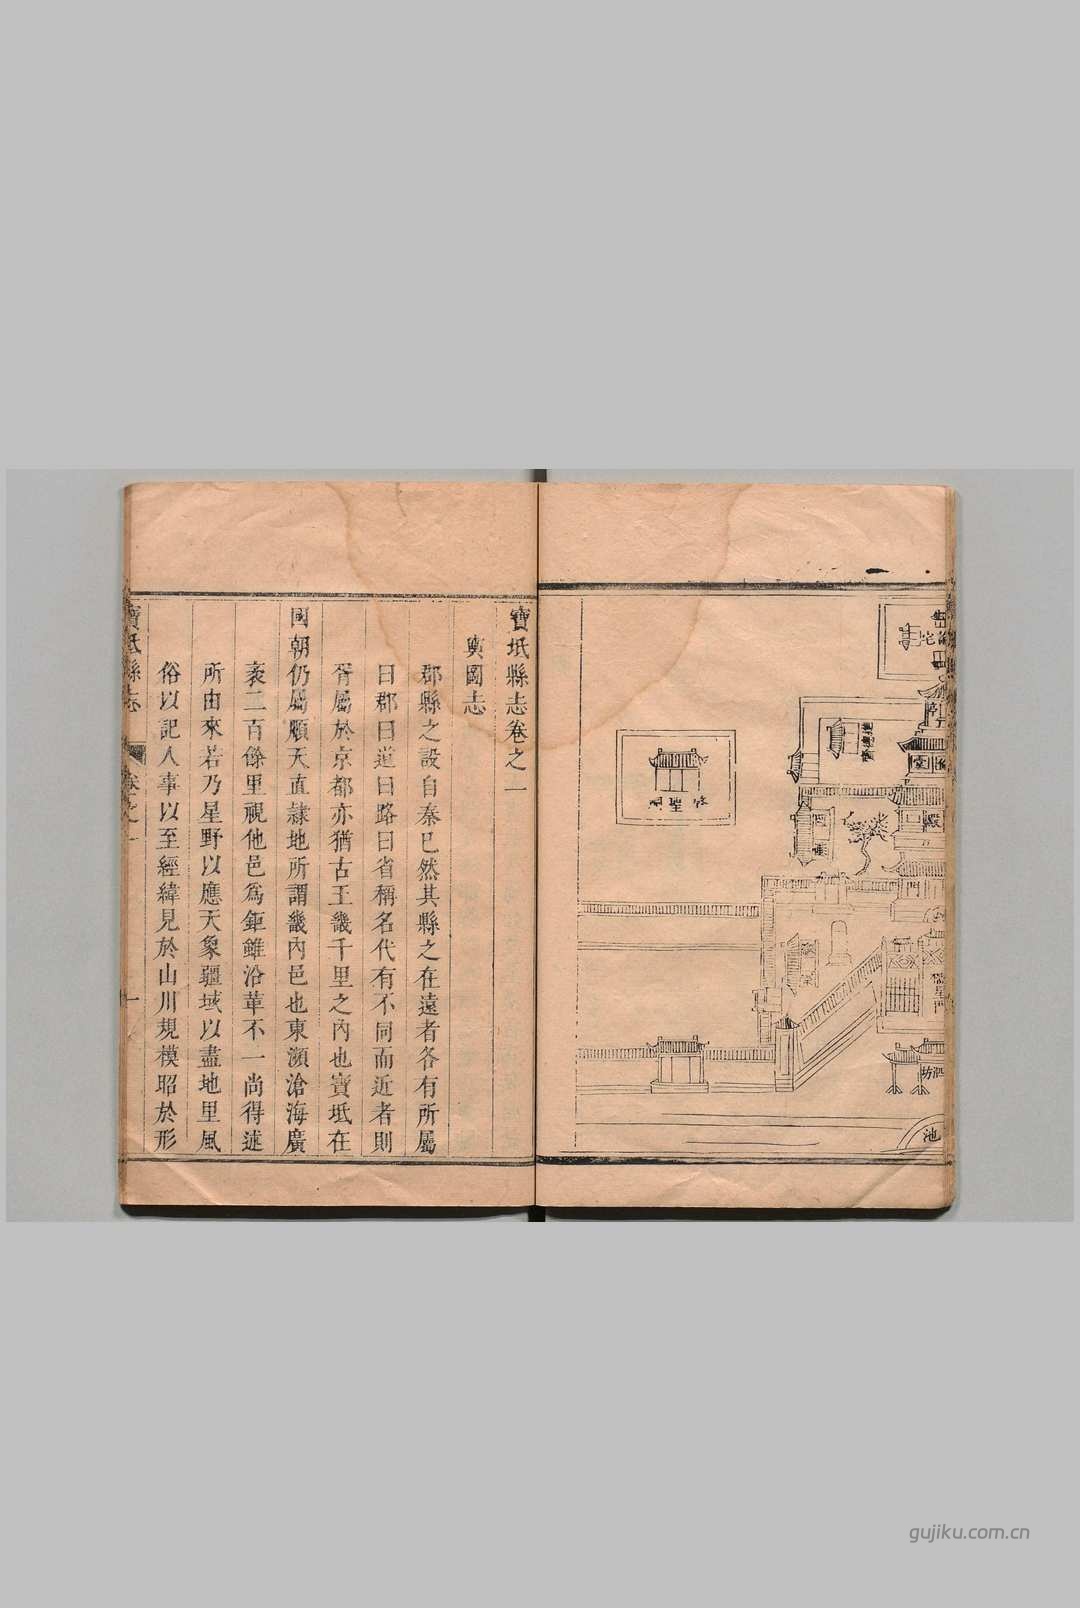 啓聖祠
進德齋
櫺星門
泗
坊
池
寶坻縣志卷之一
輿圖志
郡縣之設自秦已然其縣之在遠者各有所屬
曰郡曰道曰路曰省稱名代有不同而近者則
胥屬於京都亦猶古王畿千里之內也寶坻在
國朝仍屬順天直隸地所謂畿內邑也東瀕滄海廣
袤二百餘里視他邑爲鉅雖沿革不一尚得述
所由來若乃星野以應天象疆域以盡地里風
俗以記人事以至經緯見於山川規模昭於形
寶坻縣志
卷之一
一
gujiku.com.cn